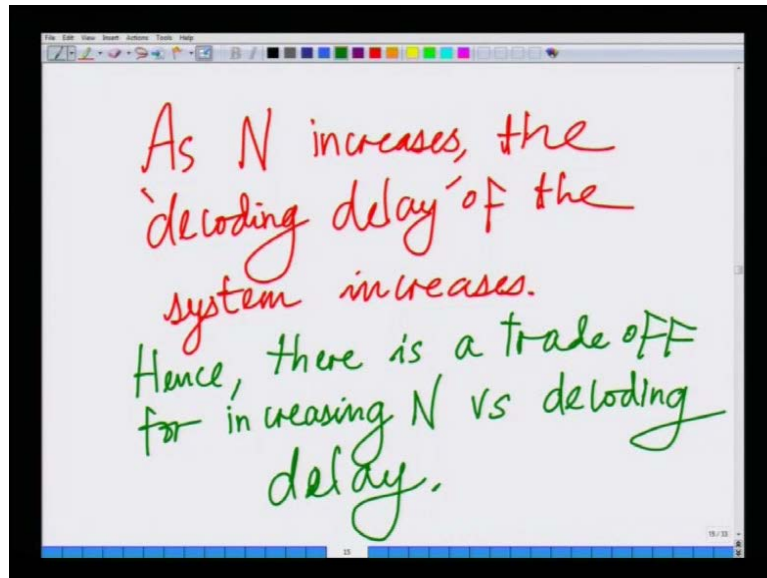 File Edit View Insert Actions Tools Help
As N increases, the
'decoding delay' of the
system increases.
Hence, there is a trade off
for increasing N vs decoding
delay.
15/33
15